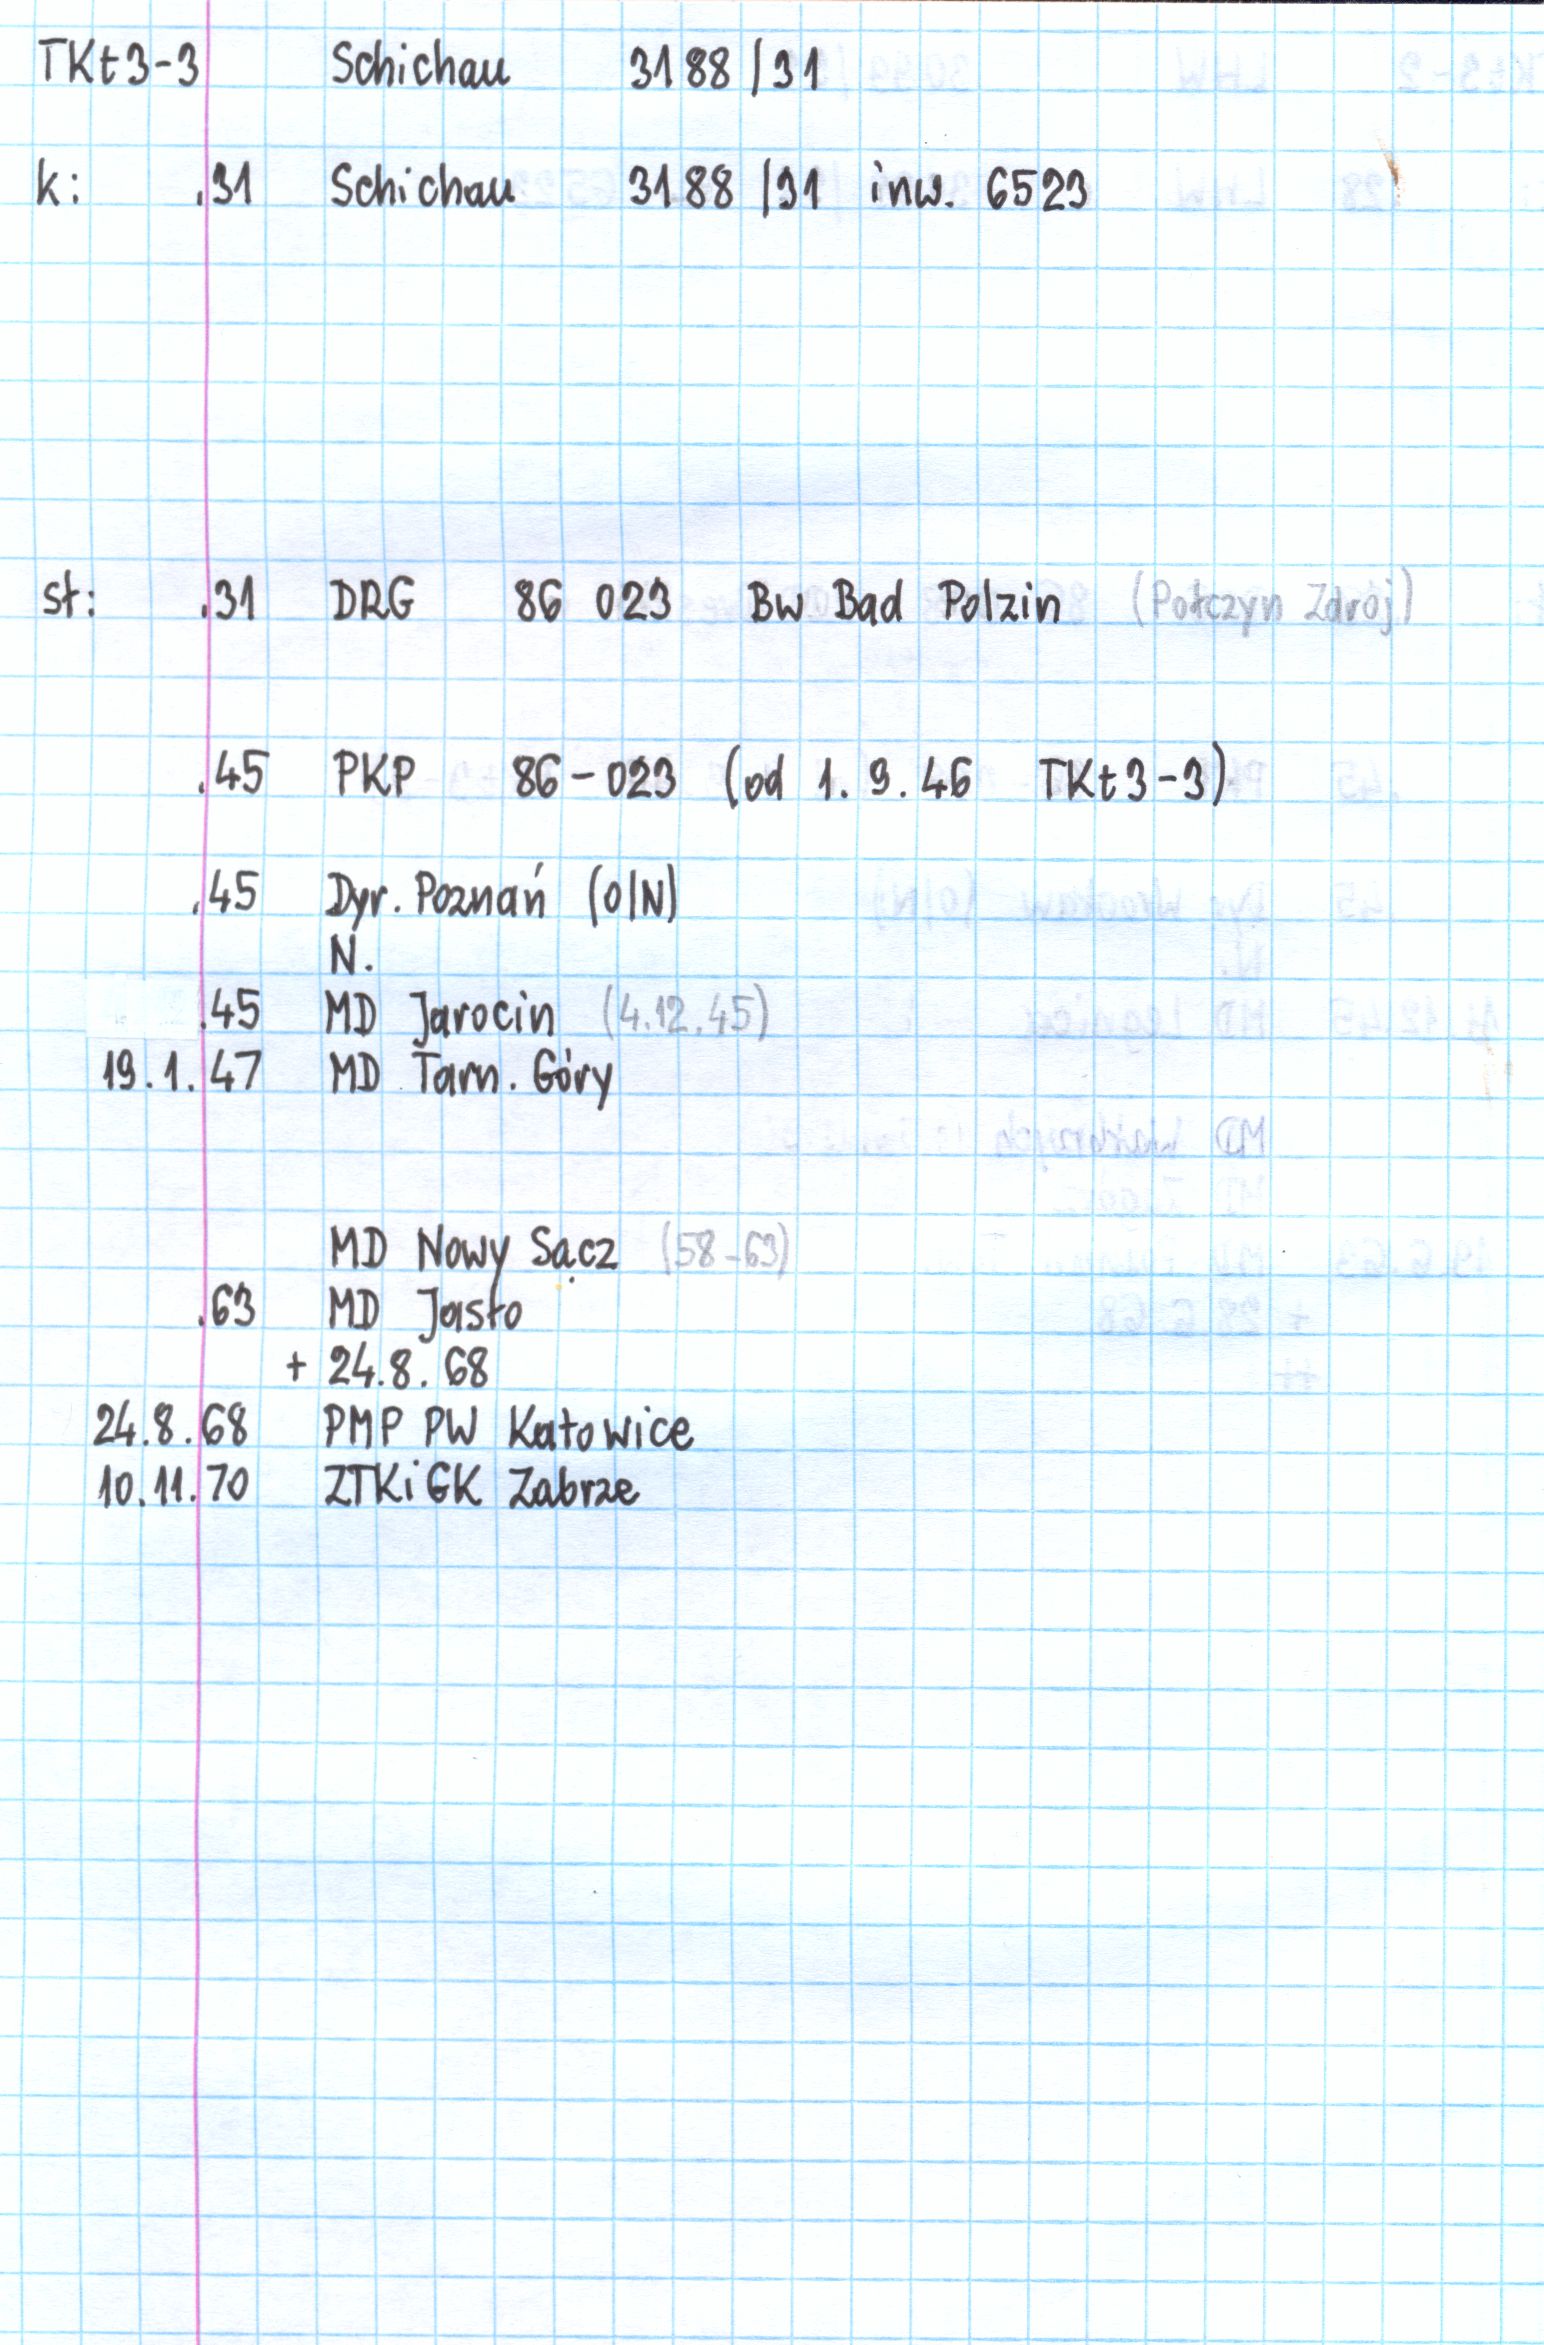 TKt3-3 Schichau 3188/31
k: .31 Schichau 3188/31 inw. 6523
st: .31 DRG 86 023 Bw Bad Polzin (Połczyn Zdrój)
.45 PKP 86-023 (od 1.9.46 TKt3-3)
.45 Dyr. Poznań (O/N)
N.
.45 MD Jarocin (4.12.45)
19.1.47 MD Tarn. Góry
MD Nowy Sącz (58-63)
.63 MD Jasło
+ 24.8.68
24.8.68 PMP PW Katowice
10.11.70 ZTKiGK Zabrze